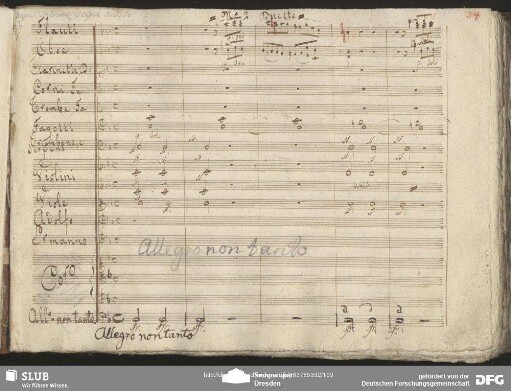 N. 2 Duetto
Flauti
Oboe
Clarinetti
Corni Fa
Trombe Fa
Fagotti
Tromboni e
Violini
Viole
Adolfo
Ermanno
Allegro non tanto
Coro
All.o non tanto
Allegro non tanto
SLUB
Wir führen Wissen.
Dresden
gefördert von der
Deutschen Forschungsgemeinschaft
DFG